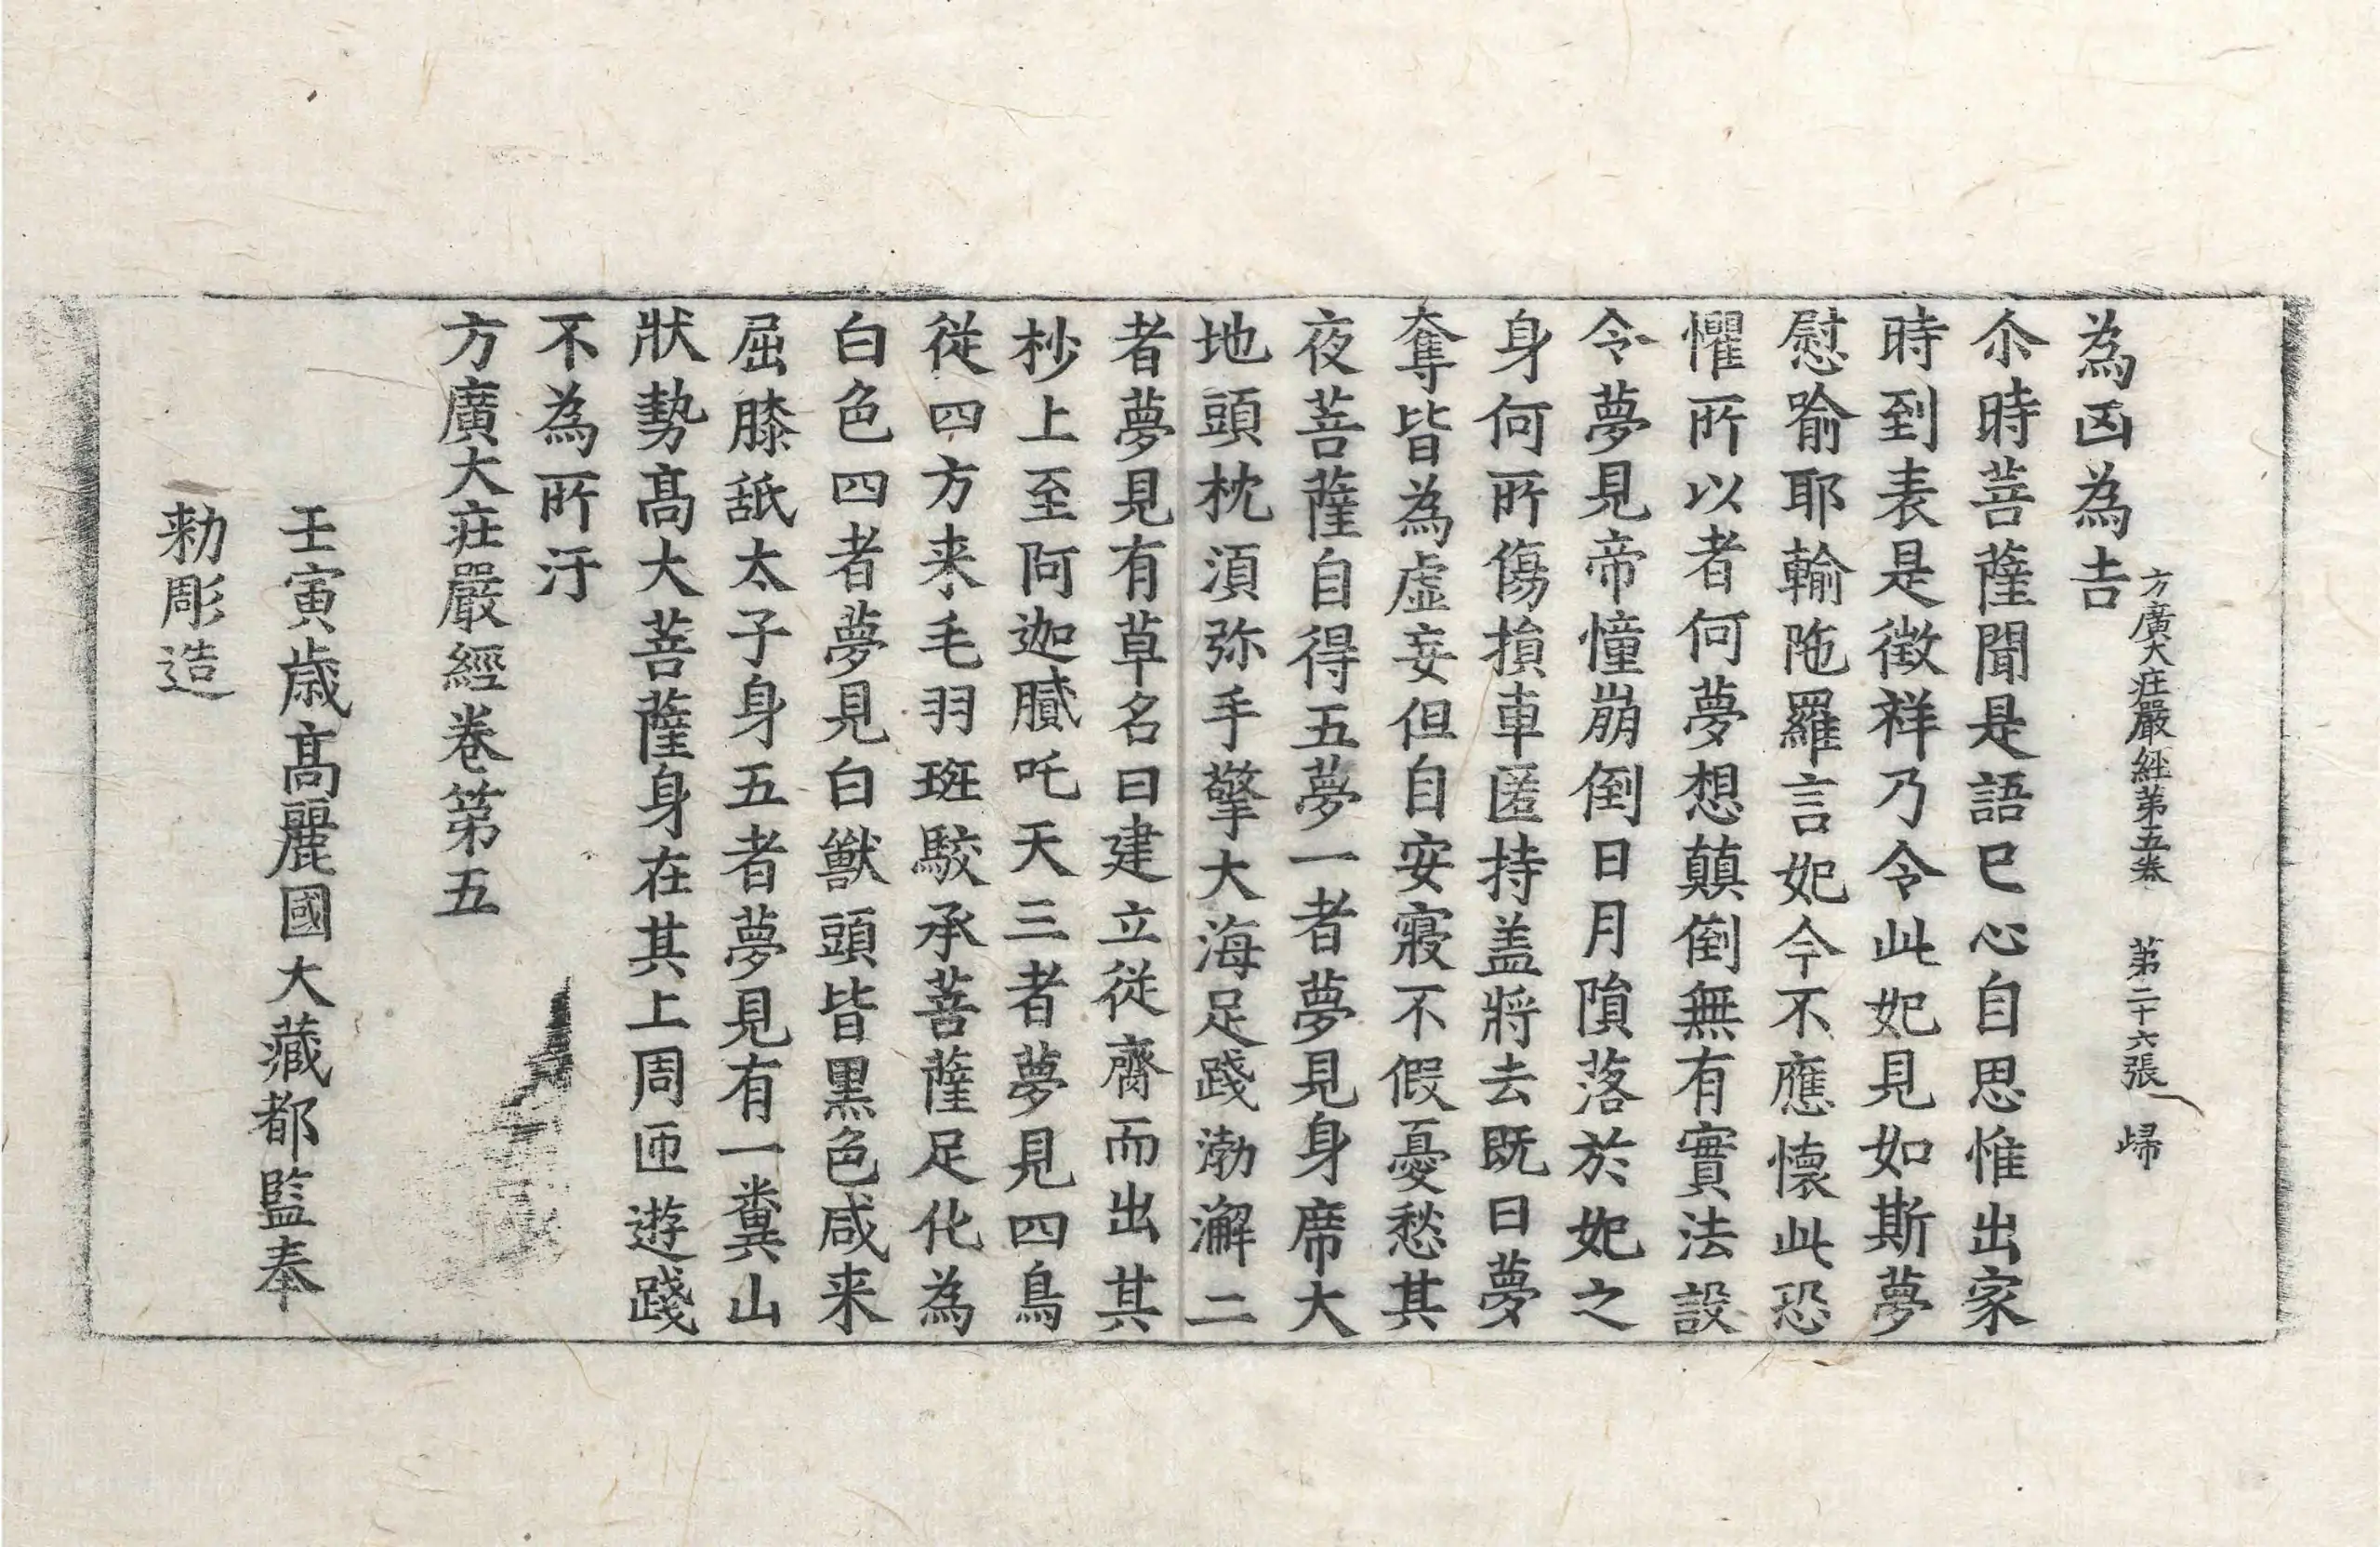 方廣大疰嚴經第五卷　第二十六張　㱕
為凶為吉
尒時菩薩聞是語已心自思惟出家
時到表是徴祥乃令此妃見如斯夢
慰喻耶輸陁羅言妃今不應懷此恐
懼所以者何夢想顛倒無有實法設
令夢見帝憧崩倒日月隕落於妃之
身何所傷損車匿持盖將去既曰夢
奪皆為虛妄但自安寢不假憂愁其
夜菩薩自得五夢一者夢見身席大
地頭枕湏弥手擎大海足踐渤澥二
者夢見有草名曰建立從齊而出其
杪上至阿迦膩吒天三者夢見四鳥
從四方来毛羽斑駮承菩薩足化為
白色四者夢見白獸頭皆黒色咸来
屈膝舐太子身五者夢見有一糞山
狀勢髙大菩薩身在其上周匝遊踐
不為所汙
方廣大疰嚴經卷第五
壬寅歲髙麗國大藏都監奉
勑彫造